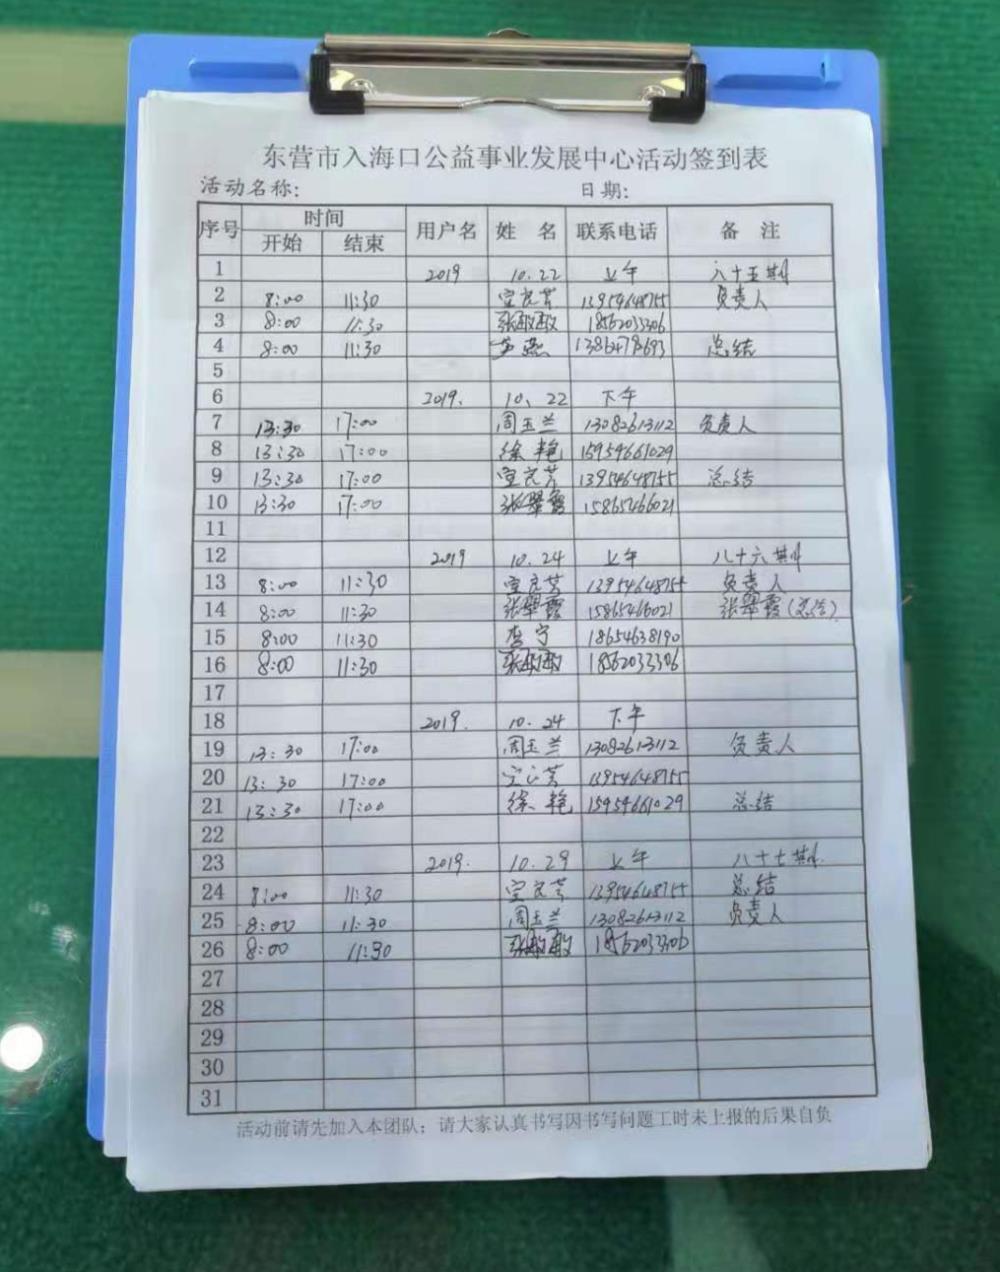 东营市入海口公益事业发展中心活动签到表
活动名称: 日期:
序号 时间 用户名 姓 名 联系电话 备 注
开始 结束
1 2019 10.22 上午 八十五期
2 8:00 11:30 13954648755 负责人
3 8:00 11:30 张敏敏 18562033306
4 8:00 11:30 总结
5
6 2019. 10、22 下午
7 13:30 17:00 周玉兰 13082613112 负责人
8 13:30 17:00 徐艳 15954661029
9 13:30 17:00 13954648755 总结
10 13:30 17:00 张翠霞 15865466021
11
12 2019 10.24 上午 八十六期
13 8:00 11:30 13954648755 负责人
14 8:00 11:30 张翠霞 15865466021 张翠霞(总结)
15 8:00 11:30 李宁 18654638190
16 8:00 11:30 张敏敏 18562033306
17
18 2019. 10.24 下午
19 13:30 17:00 周玉兰 13082613112 负责人
20 13:30 17:00 13954648755
21 13:30 17:00 徐艳 15954661029 总结
22
23 2019. 10.29 上午 八十七期.
24 8:00 11:30 13954648755 总结
25 8:00 11:30 周玉兰 13082613112 负责人
26 8:00 11:30 张敏敏 18562033306
27
28
29
30
31
活动前请先加入本团队；请大家认真书写因书写问题工时未上报的后果自负